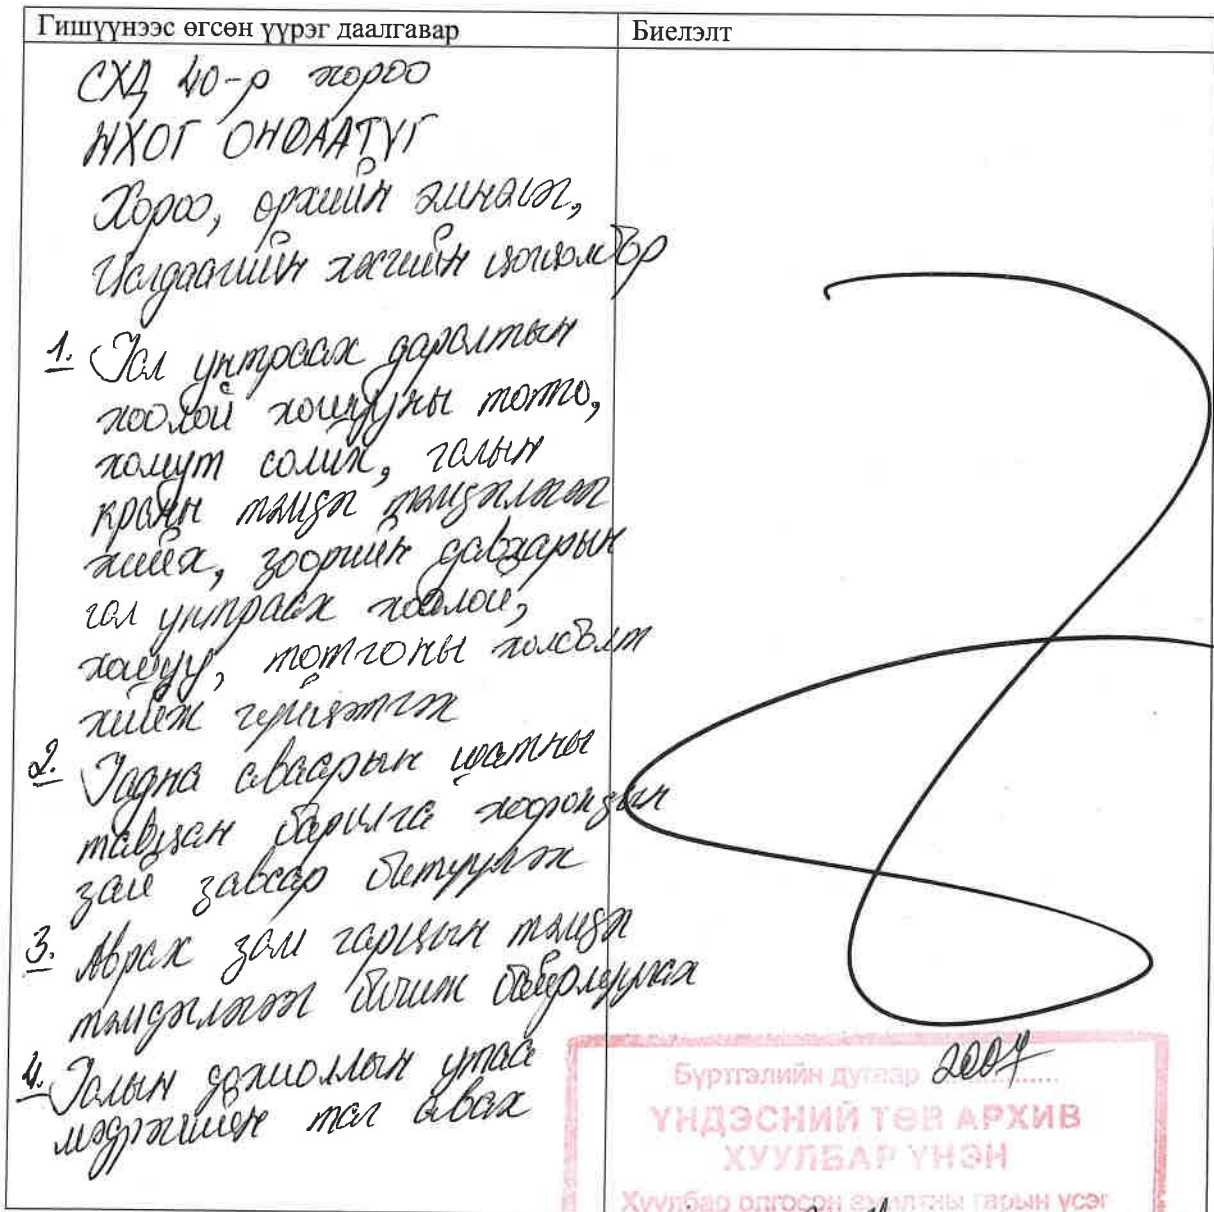 Гишүүнээс өгсөн үүрэг даалгавар
Биелэлт
СХД 40-р хороо
НХОГ ОНӨААТҮГ
Хороо, өрхийн эмнэлэг,
Цагдаагийн хэсгийн цогцолбор
1. Гал унтраах даралтын
хоолой хошууны тотго,
хомут солих, галын
кранн тэмдэг тэмдэглэгээ
хийх, зоорийн давхарын
гал унтраах хоолой,
хошуу, тотгоны холболт
хийж гүйцэтгэх
2. Гадна аваарын шатны
тавцан барилга хоорондын
зай завсар битүүлэх
3. Аврах зам гарцын тэмдэг
тэмдэглэгээг бичиж байрлуулах
4. Галын дохиоллын утаа
мэдрэгчийн тал авах
Бүртгэлийн дугаар 2007
ҮНДЭСНИЙ ТӨВ АРХИВ
ХУУЛБАР ҮНЭН
Хуулбар олгосон ажилтны гарын үсэг